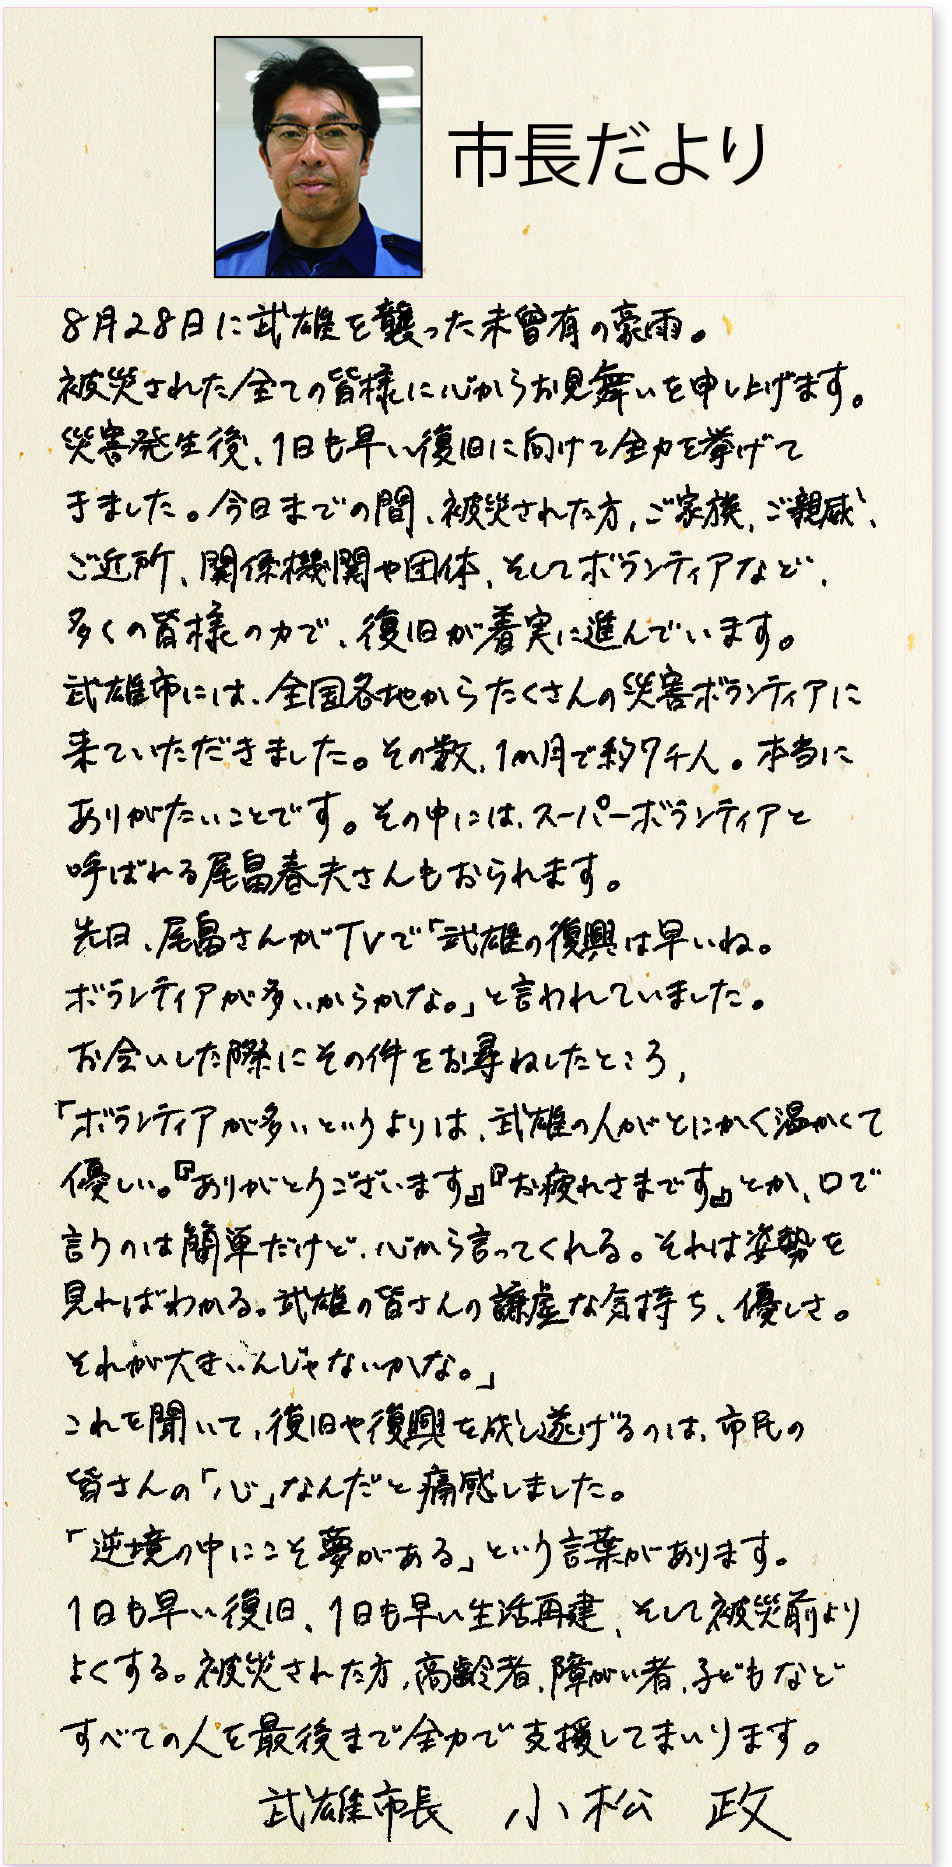 市長だより
8月28日に武雄を襲った未曾有の豪雨。
被災された全ての皆様に心からお見舞いを申し上げます。
災害発生後、1日も早い復旧に向けて全力を挙げて
きました。今日までの間、被災された方、ご家族、ご親戚、
ご近所、関係機関や団体、そしてボランティアなど、
多くの皆様の力で、復旧が着実に進んでいます。
武雄市には、全国各地からたくさんの災害ボランティアに
来ていただきました。その数、1か月で約7千人。本当に
ありがたいことです。その中には、スーパーボランティアと
呼ばれる尾畠春夫さんもおられます。
先日、尾畠さんがTVで「武雄の復興は早いね。
ボランティアが多いからかな。」と言われていました。
お会いした際にその件をお尋ねしたところ、
「ボランティアが多いというよりは、武雄の人がとにかく温かくて
優しい。『ありがとうございます』『お疲れさまです』とか、口で
言うのは簡単だけど、心から言ってくれる。それは姿勢を
見ればわかる。武雄の皆さんの謙虚な気持ち、優しさ。
それが大きいんじゃないかな。」
これを聞いて、復旧や復興を成し遂げるのは、市民の
皆さんの「心」なんだと痛感しました。
「逆境の中にこそ夢がある」という言葉があります。
1日も早い復旧、1日も早い生活再建、そして被災前より
よくする。被災された方、高齢者、障がい者、子どもなど
すべての人を最後まで全力で支援してまいります。
武雄市長 小松 政